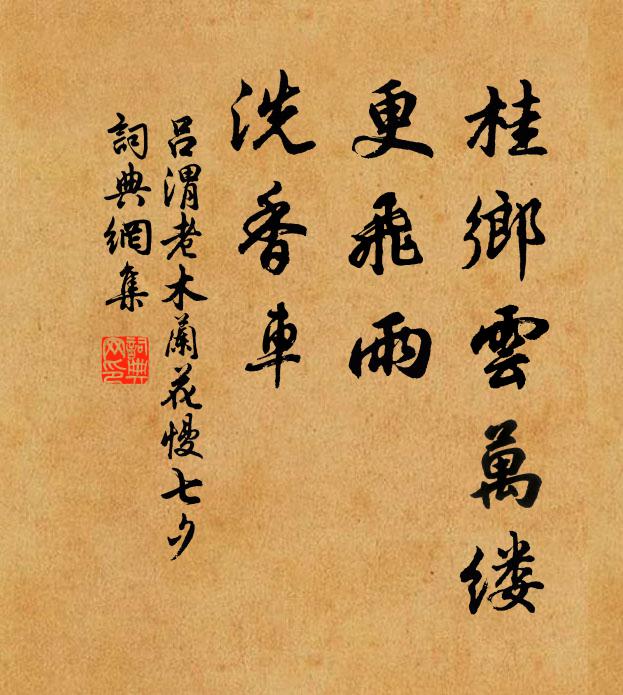 桂鄉雲萬缕
更飛雨
洗香車
吕渭老木蘭花慢七夕
詞典網集
詞典网印